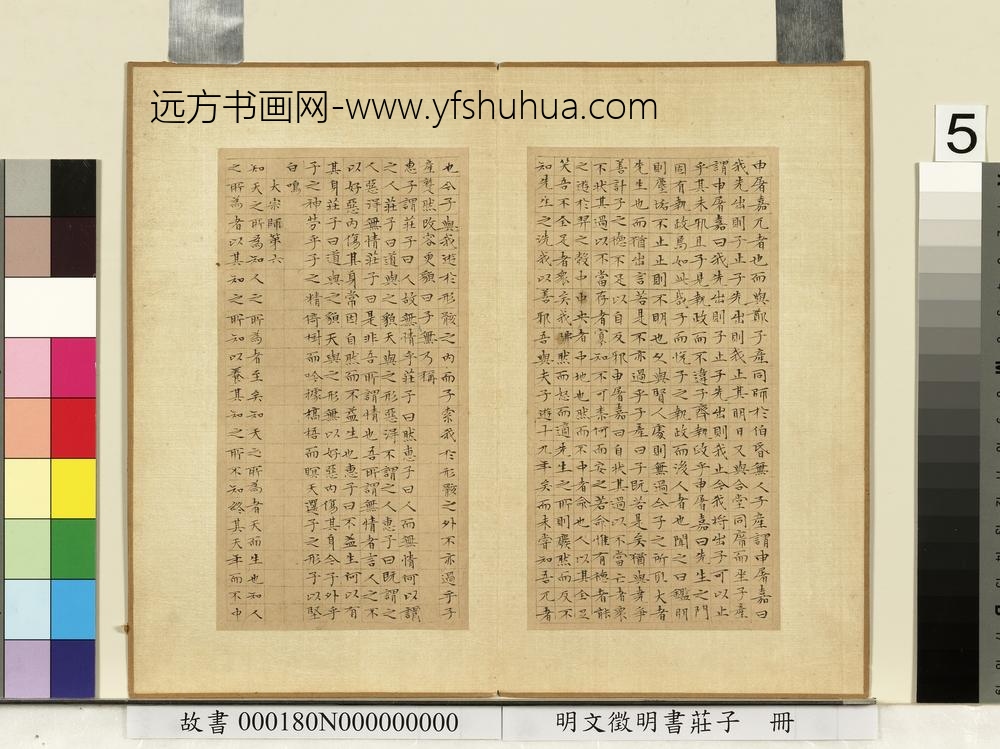 远方书画网-www.yfshuhua.com
5
申屠嘉兀者也而與鄭子產同師於伯昏無人子產謂申屠嘉曰
我先出則子止子先出則我止其明日又與合堂同席而坐子產
謂申屠嘉曰我先出則子止子先出則我止今我將出子可以止
乎其未邪且子見執政而不違子齊執政乎申屠嘉曰先生之門
固有執政焉如此哉子而悅子之執政而後人者也聞之曰鑑明
則塵垢不止止則不明也久與賢人處則無過今子之所取大者
先生也而猶出言若是不亦過乎子產曰子既若是矣猶與堯爭
善計子之德不足以自反邪申屠嘉曰自狀其過以不當亡者衆
不狀其過以不當存者寡知不可柰何而安之若命惟有德者能
之遊於羿之彀中中央者中地也然而不中者命也人以其全足
笑吾不全足者衆矣我怫然而怒而適先生之所則廢然而反不
知先生之洗我以善邪吾與夫子遊十九年矣而未嘗知吾兀者
也今子與我遊於形骸之內而子索我於形骸之外不亦過乎子
產蹵然改容更貌曰子無乃稱
惠子謂莊子曰人故無情乎莊子曰然惠子曰人而無情何以謂
之人莊子曰道與之貌天與之形惡得不謂之人惠子曰既謂之
人惡得無情莊子曰是非吾所謂情也吾所謂無情者言人之不
以好惡內傷其身常因自然而不益生也惠子曰不益生何以有
其身莊子曰道與之貌天與之形無以好惡內傷其身今子外乎
子之神勞乎子之精倚樹而吟據槁梧而瞑天選子之形子以堅
白鳴
大宗師第六
知天之所為知人之所為者至矣知天之所為者天而生也知人
之所為者以其知之所知以養其知之所不知終其天年而不中
故書 000180N000000000
明文徵明書莊子 冊